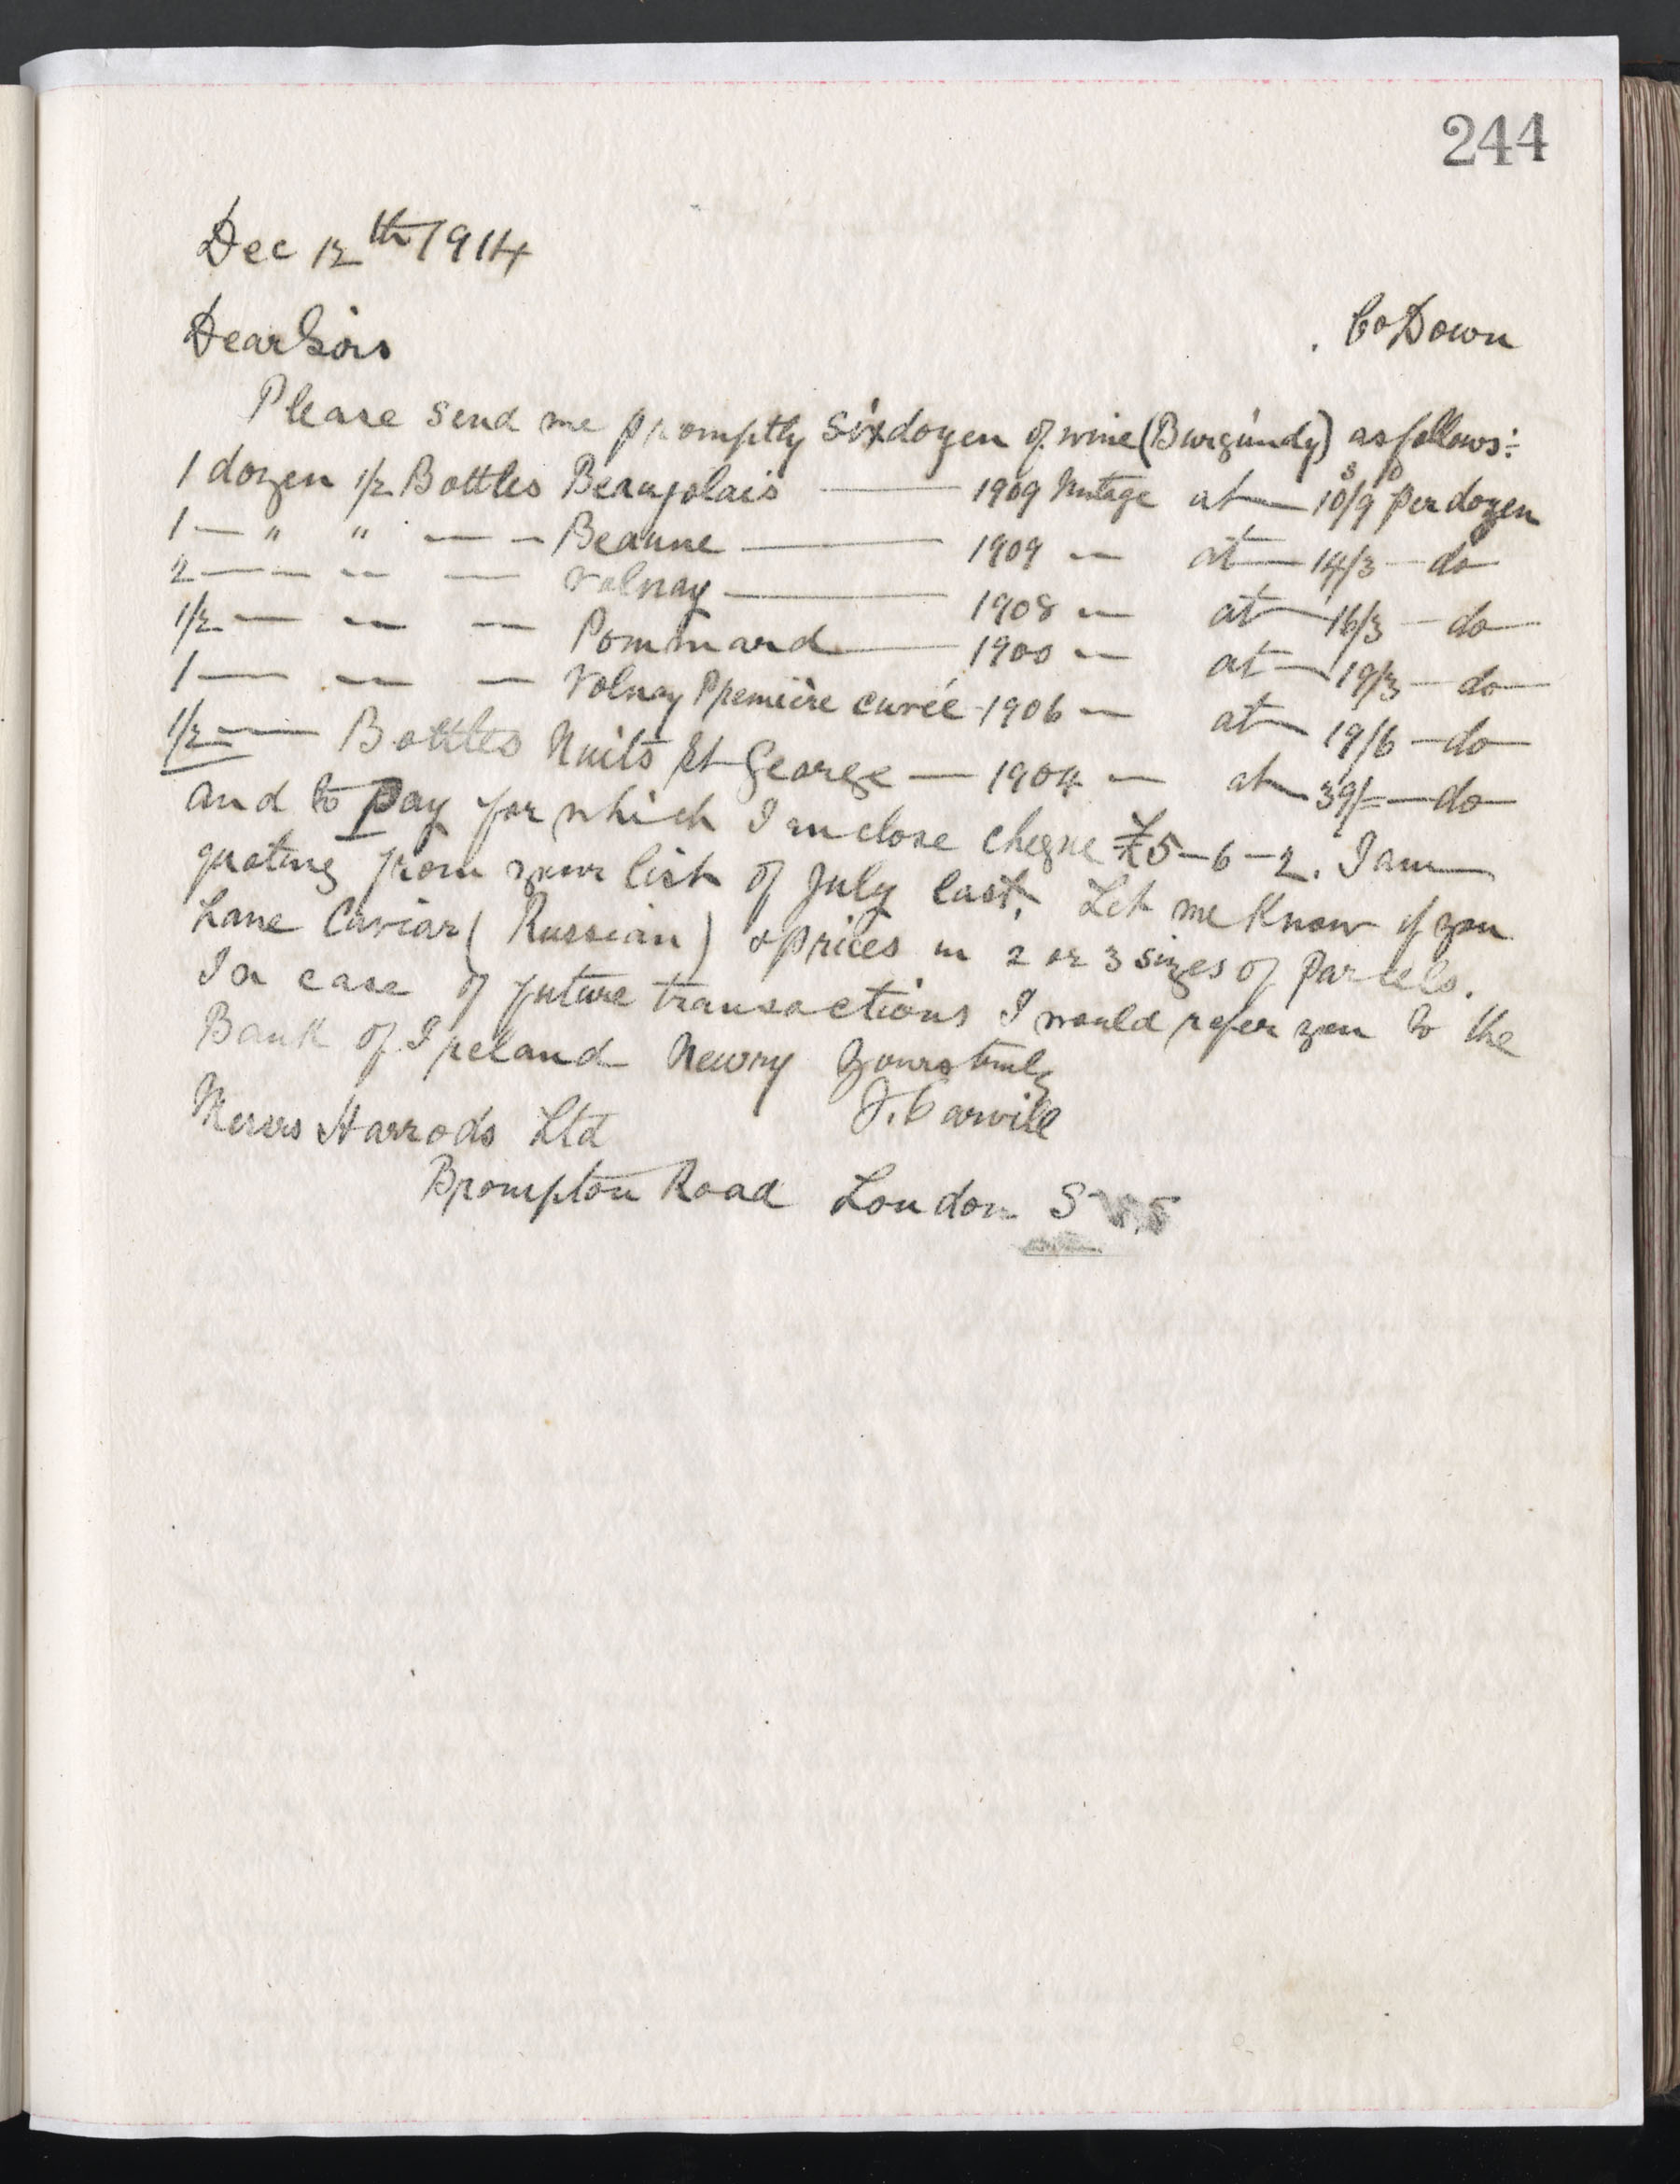 244
Dec 12th 1914
Co Down
Dear Sirs
Please send me promptly six dozen of wine (Burgundy) as follows:-
1 dozen 1/2 Bottles Beaujolais — 1909 Vintage at — 10s/9d per dozen
1 — " " — — Beaune — 1909 — at — 14/3 — do
2 — — — Volnay — 1908 — at — 16/3 — do
1/2 — — — Pommard — 1900 — at — 19/3 — do
1 — — — Volnay Première cuvée - 1906 — at — 19/6 — do
1/2 — Bottles Nuits St George — 1904 — at — 39/= — do
and to pay for which I enclose cheque £5-6-2. I am
quoting from your list of July last. Let me know if you
have Caviar (Russian) & prices in 2 or 3 sizes of parcels.
In case of future transactions I would refer you to the
Bank of Ireland Newry Yours truly
J. Carvill
Messrs Harrods Ltd
Brompton Road London S